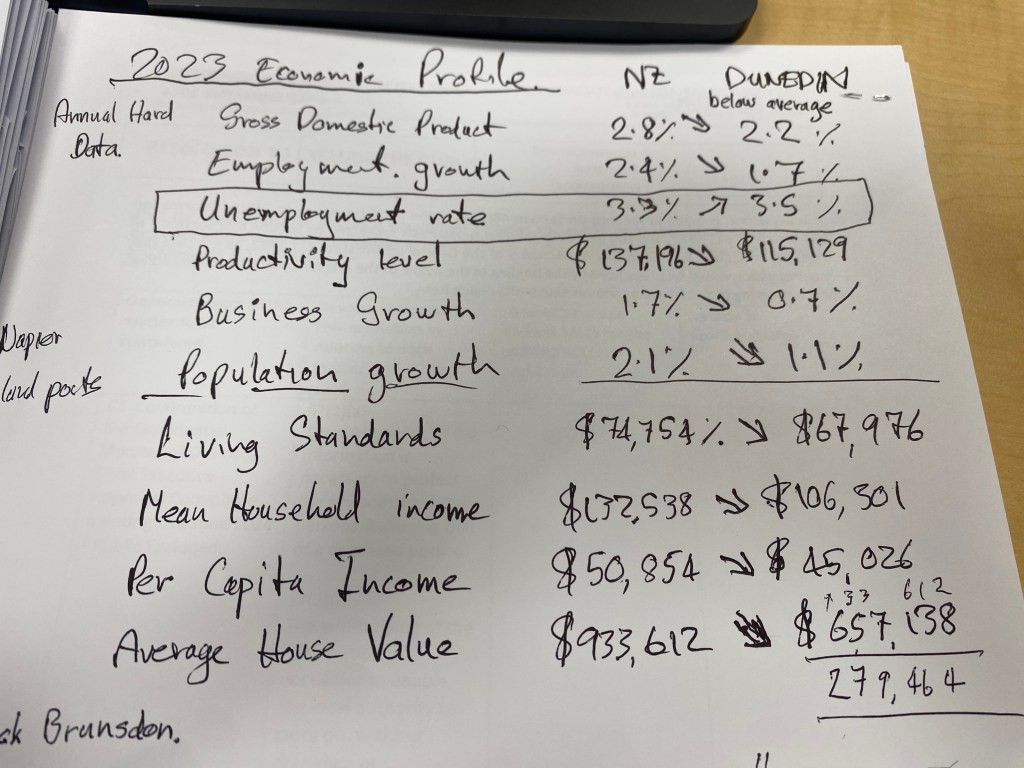 2023 Economic Profile. NZ DUNEDIN
below average
Annual Hard Data.
Gross Domestic Product 2.8% ↘ 2.2%
Employment. growth 2.4% ↘ 1.7%
Unemployment rate 3.3% ↗ 3.5%
Productivity level $137,196 ↘ $115,129
Business Growth 1.7% ↘ 0.7%
Napier
Population growth 2.1% ↘ 1.1%
Living Standards $74,754% ↘ $67,976
Mean Household income $132,538 ↘ $106,301
Per Capita Income $50,854 ↘ $45,026
933 612
Average House Value $933,612 ↘ $657,138
279,464
Brunsdon.